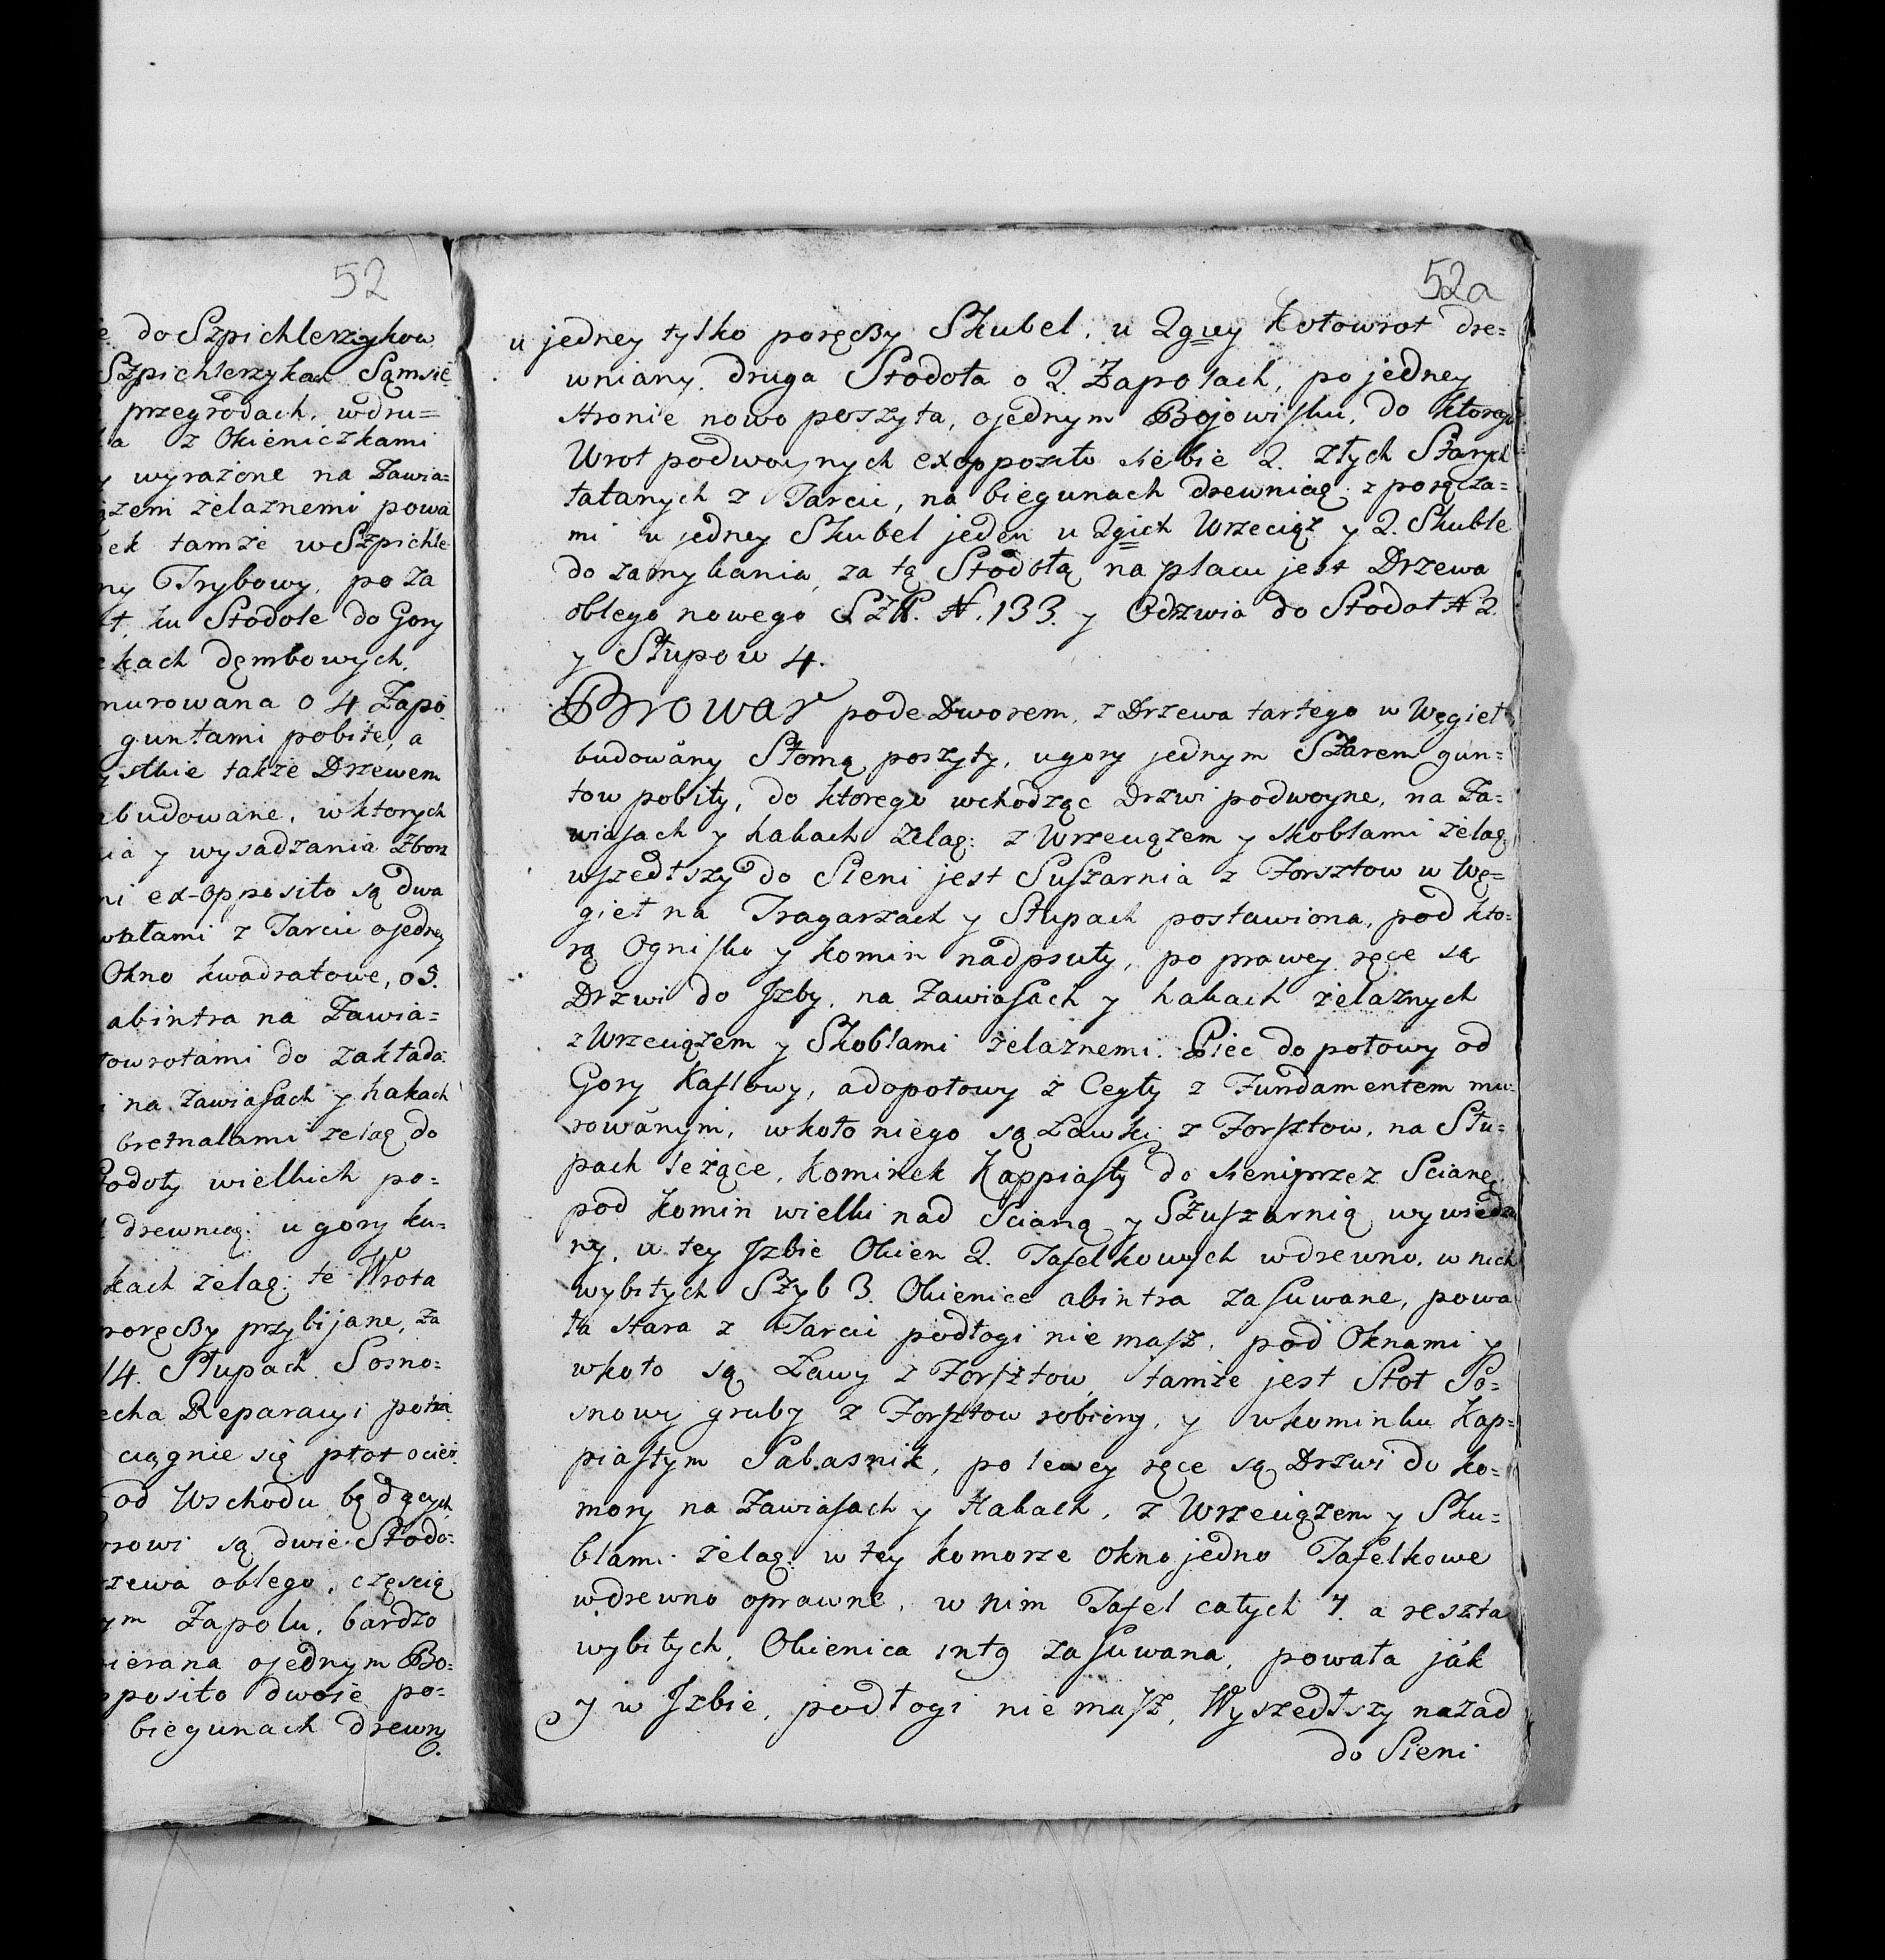 52
do Szpichlerzykow
Szpichlerzykach Sąmsie
przegrodach, wdru=
z Okieniczkami
wyrażone na Zawia=
żelaznemi powa
tamże w Szpichle
Trybowy, po za
ku Stodole do Gory
dęmbowych.
murowana o 4 Zapo
guntami pobite, a
także Drzewem
budowane, w ktorych
y wysadzania Zboża
ex-opposito są dwa
z Tarcic ojedney
Okno kwadratowe, o 5.
abintra na Zawia=
do zakłada:
na Zawiasach y hakach
bretnalami żelaz do
wielkich po=
drewnią: u gory ku=
żelaz: te Wrota
poręczy przybijane, za
14. Słupach Sosno=
Reparacyi
ciągnie się płot
od Wschodu będących
są dwie Stodo:
oblego, częscią
Zapolu, bardzo
ojednym Bo:
dwoje po=
biegunach drewn
52a
u jedney tylko poręczy Skubel, u 2giey Kołowrot dre=
wniany. druga Stodoła o 2 Zapolach, po jedney
stronie nowo poszyta, ojednym Bojowisku, do ktorego
Wrot podwoynych exopposito siebie 2. złych Starych
łatanych z Tarcic, na biegunach drewnią: z poręcza=
mi u jedney Skubel jeden u 2gich Wrzeciąż y 2. Skuble
do zamykania, za tą Stodołą na placu jest Drzewa
oblego nowego SZK. N. 133. y Odrzwia do Stodoł N 2.
y Słupow 4.
Browar pode Dworem, z Drzewa tartego w Węgieł
budowany Słomą poszyty, ugory jednym Szarem gun=
tow pobity, do ktorego wchodząc Drzwi podwoyne, na Za=
wiasach y hakach żelaz: z Wrzeciążem y skoblami żelaz.
wszedłszy do Sieni jest Suszarnia z Forsztow w Wę=
gieł na Tragarzach y Słupach postawiona, pod kto=
rą Ognisko y komin nadpsuty, po prawey ręce są
Drzwi do Jzby, na Zawiasach y hakach żelaznych
z Wrzeciążem y Skoblami żelaznemi. Piec do połowy od
Gory Kaflowy, adopołowy z Cegły z Fundamentem mu=
rowanym, wkoło niego są Ławki z Forsztow, na Słu=
pach leżące, Kominek Kappiasty do sieni przez Scianę
pod Komin wielki nad Scianą y Szuszarnią wywiedzio
ny, w tey Jzbie Okien 2. Tafelkowych wdrewno, w nich
wybitych Szyb 3. Okienice abintra zasuwane, powa
ła stara z Tarcic podłogi nie masz, pod Oknami y
wkoło są Ławy z Forsztow, tamże jest Stoł So=
snowy gruby z Forsztow robiony, y wkominku Kap=
piastym Sabasnik, po lewey ręce są Drzwi do Ko=
mory na Zawiasach y Hakach, z Wrzeciążem y Sku=
blami żelaz: w tey komorze okno jedno Tafelkowe
wdrewno oprawne, w nim Tafel całych 7. a reszta
wybitych, Okienica int9 zasuwana, powała ják
y w Jzbie, podłogi nie masz, Wyszedłszy nazad
do Sieni